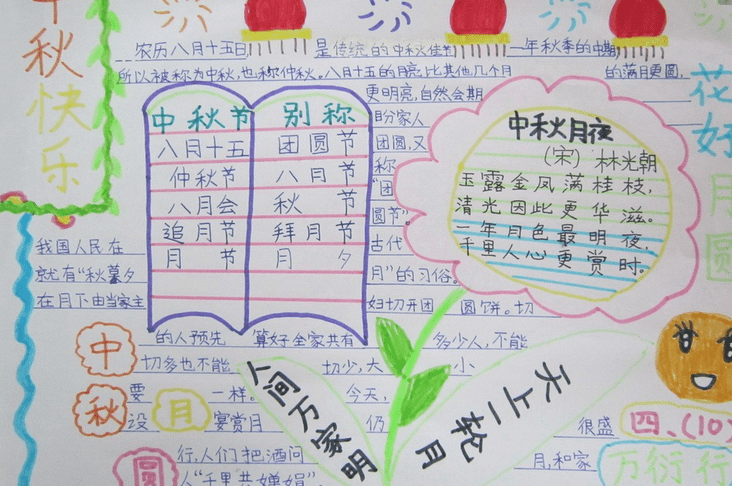 中秋快乐
农历八月十五日 是传统的中秋佳节 一年秋季的中期
所以被称为中秋,也称仲秋。八月十五的月亮比其他几个月 的满月更圆,
更明亮,自然会期
盼家人
团圆,又
称
"团
圆节"。
古代
月"的习俗。
中秋节 别称
八月十五 团圆节
仲秋节 八月节
八月会 秋节
追月节 拜月节
月节 月夕
中秋月夜
(宋) 林光朝
玉露金凤满桂枝,
清光因此更华滋。
一年月色最明夜,
千里人心更赏时。
花好月圆
我国人民在
就有"秋暮夕
在月下由当家主 妇切开团 圆饼。切
的人预先 算好全家共有 多少人,不能
切多也不能 切少,大 小
要 一样。 今天,
设 宴赏月 仍 很盛
行,人们把酒问 月,和家
人"千里共婵娟"。
中秋月圆
人间万家明
天上一轮月
四、(10)
万衍行